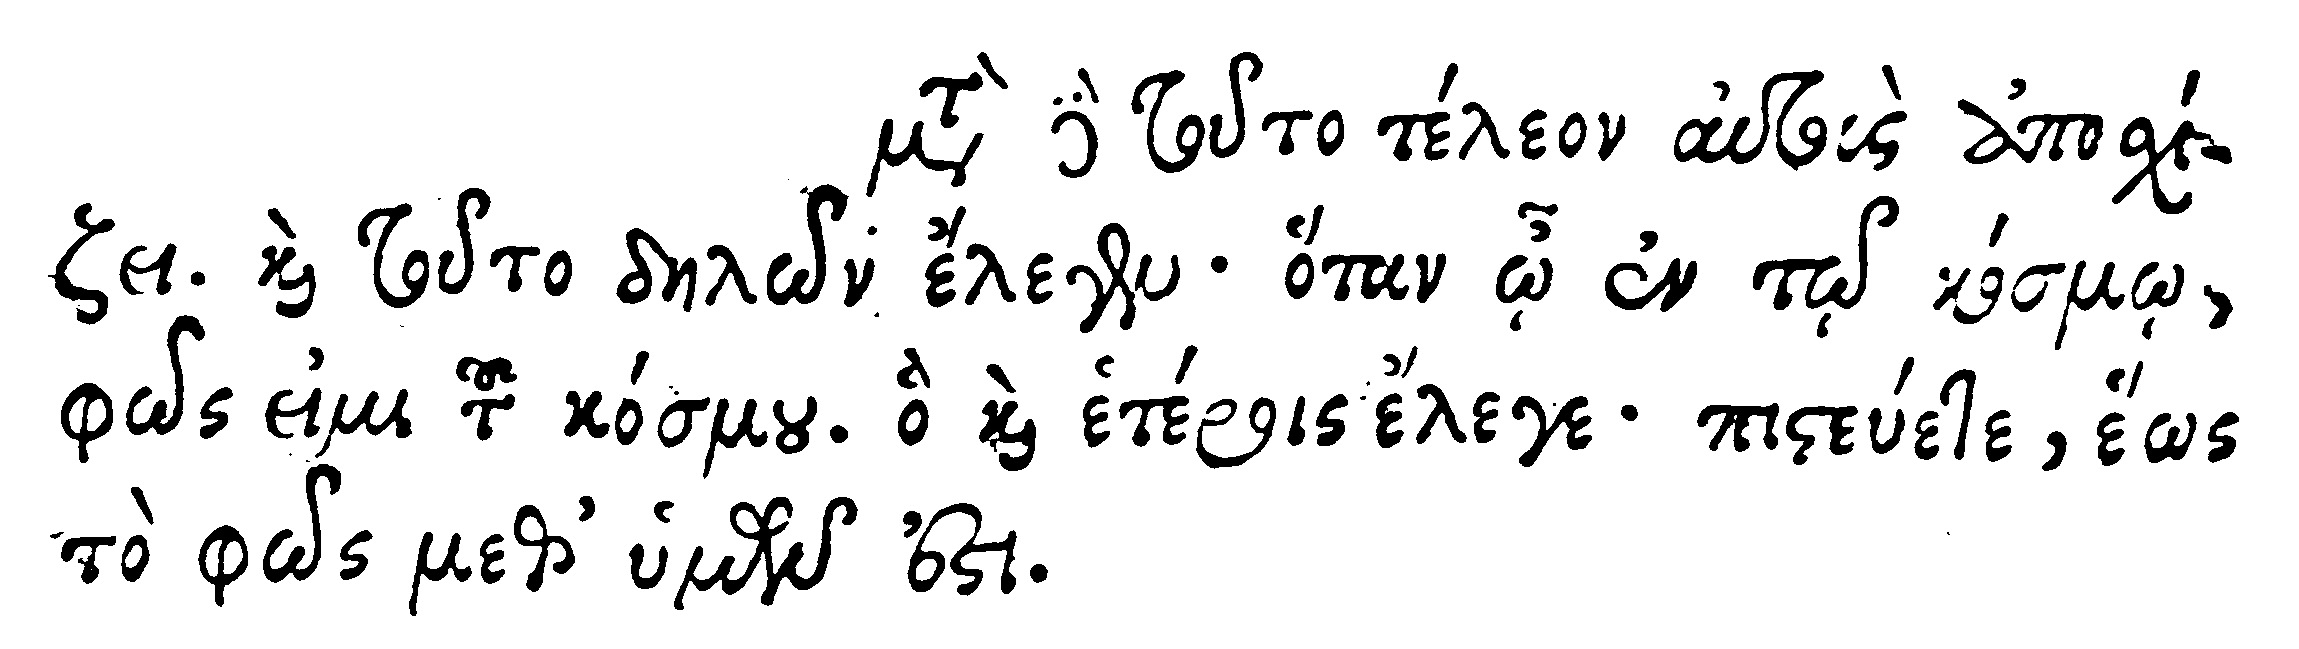 μετὰ δὲ τοῦτο τέλεον αὐτοὺς ἀποσχί-
ζει. καὶ τοῦτο δηλῶν ἔλεγεν· ὅταν ὦ ἐν τῷ κόσμῳ,
φῶς εἰμι τοῦ κόσμου. ὃ καὶ ἑτέροις ἔλεγε· πιστεύετε, ἕως
τὸ φῶς μεθ’ ὑμῶν ἐστι.